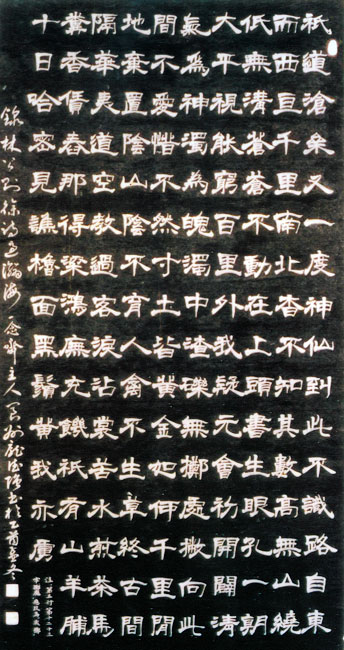 祇道滄桑又一度神仙到此不識路自東
而西亘千里南北杳不知其數高無山繞
低無溝蒼蒼不動在上頭書生眼孔一朝
大平視能窮百里外我疑元會初開闢清
氣為神濁為魄濁中渣礫無擲處撒向此
間不愛惜不然寸土皆黃金如何千里閒
地棄置陰山陰不育人禽不生草終古間
隔華夷道空教過客淚沾裳苦水煎茶馬
糞香賃舂那得梁鴻廡充饑祇有山羊脯
十日哈密見譙櫓面黑鬚黃我亦虜
錄林公則徐詩過瀚海 念齋主人 書於乙酉